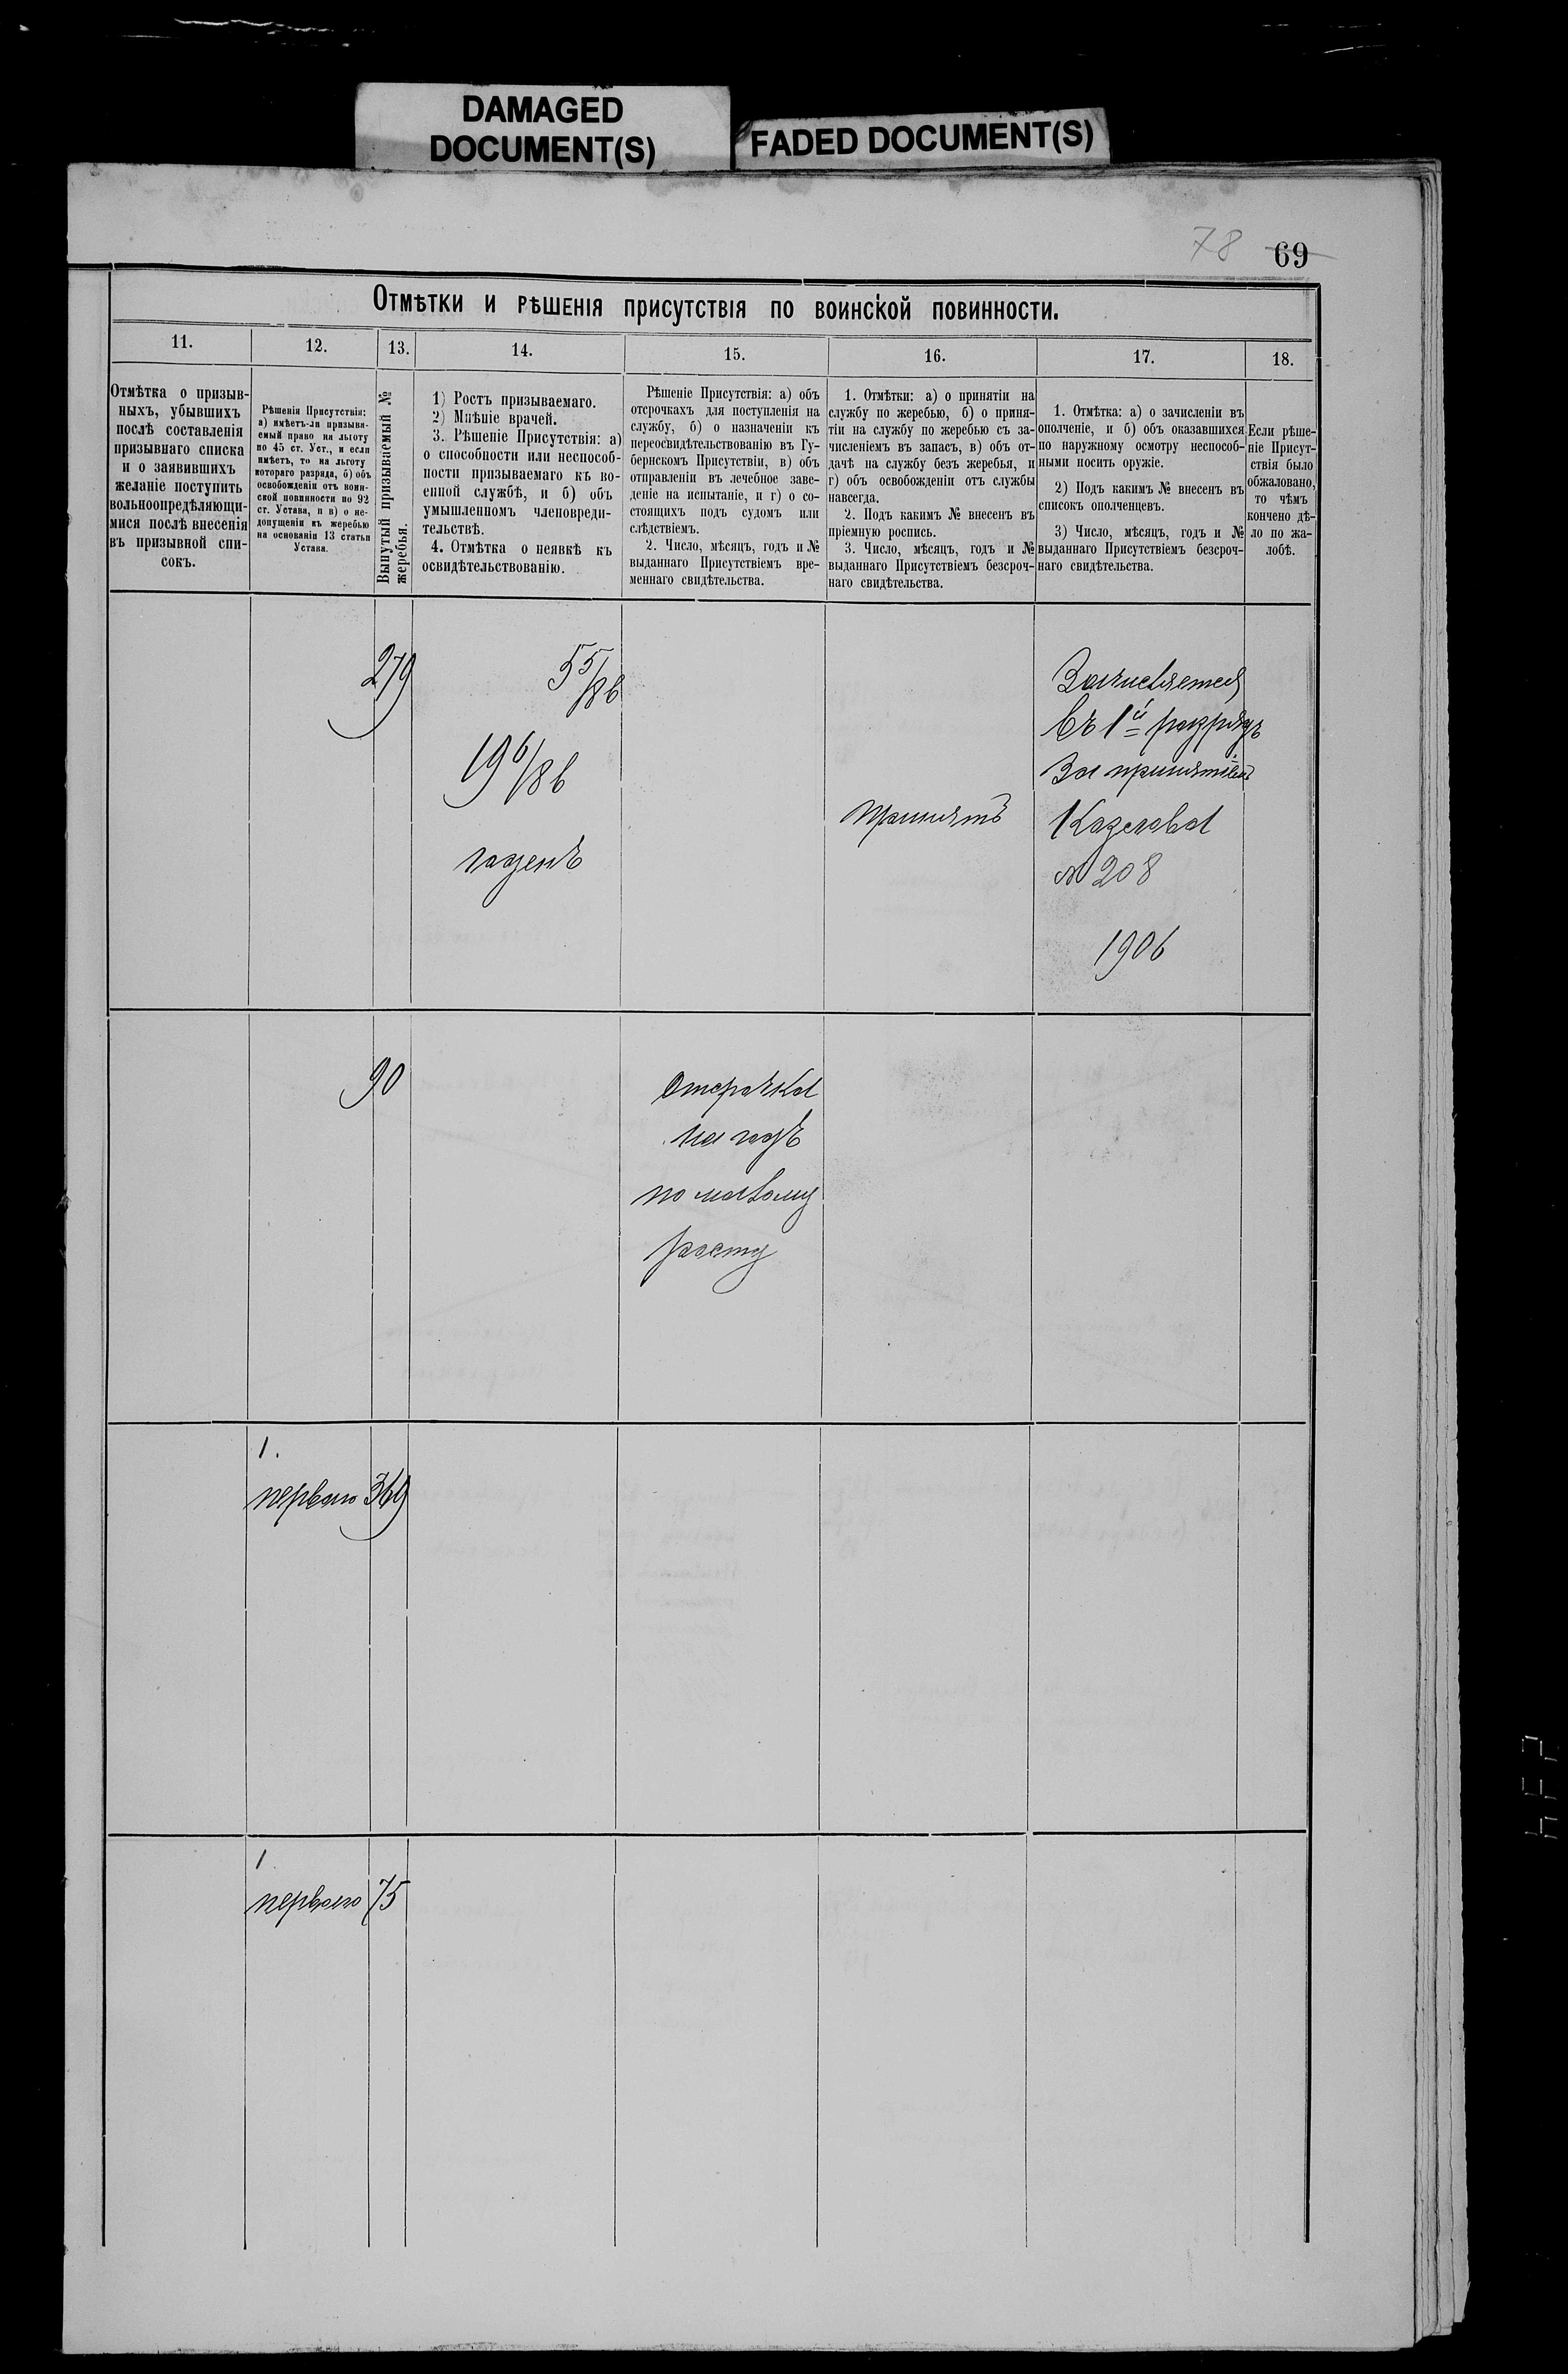 DAMAGED
DOCUMENT(S)
FADED DOCUMENT(S)
78 69
Отмѣтки и рѣшенія присутствія по воинской повинности.
11.
12.
13.
14.
15.
16.
17.
18.
Отмѣтка о призыв-
ныхъ, убывшихъ
послѣ составленія
призывнаго списка
и о заявившихъ
желаніе поступить
вольноопредѣляющи-
мися послѣ внесенія
въ призывной спи-
сокъ.
Рѣшенія Присутствія:
а) имѣетъ-ли призыва-
емый право на льготу
по 45 ст. Уст., и если
имѣетъ, то на льготу
котораго разряда, б) объ
освобожденіи отъ воин-
ской повинности по 92
ст. Устава, и в) о не-
допущеніи къ жеребью
на основаніи 13 статьи
Устава.
Вынутый призываемый №
жеребья.
1) Ростъ призываемаго.
2) Мнѣніе врачей.
3. Рѣшеніе Присутствія: а)
о способности или неспособ-
ности призываемаго къ во-
енной службѣ, и б) объ
умышленномъ членовреди-
тельствѣ.
4. Отмѣтка о неявкѣ къ
освидѣтельствованію.
Рѣшеніе Присутствія: а) объ
отсрочкахъ для поступленія на
службу, б) о назначеніи къ
переосвидѣтельствованію въ Гу-
бернскомъ Присутствіи, в) объ
отправленіи въ лечебное заве-
деніе на испытаніе, и г) о со-
стоящихъ подъ судомъ или
слѣдствіемъ.
2. Число, мѣсяцъ, годъ и №
выданнаго Присутствіемъ вре-
меннаго свидѣтельства.
1. Отмѣтки: а) о принятіи на
службу по жеребью, б) о приня-
тіи на службу по жеребью съ за-
численіемъ въ запасъ, в) объ от-
дачѣ на службу безъ жеребья, и
г) объ освобожденіи отъ службы
навсегда.
2. Подъ какимъ № внесенъ въ
пріемную роспись.
3. Число, мѣсяцъ, годъ и №
выданнаго Присутствіемъ безсроч-
наго свидѣтельства.
1. Отмѣтка: а) о зачисленіи въ
ополченіе, и б) объ оказавшихся
по наружному осмотру неспособ-
ными носить оружіе.
2) Подъ какимъ № внесенъ въ
списокъ ополченцевъ.
3) Число, мѣсяцъ, годъ и №
выданнаго Присутствіемъ безсроч-
наго свидѣтельства.
Если рѣше-
ніе Присут-
ствія было
обжаловано,
то чѣмъ
кончено дѣ-
ло по жа-
лобѣ.
279
55/8 в
19 6/8 в
годенъ
принятъ
Зачисляется
въ 1й разрядъ
За принятіемъ
Козелова
№ 208
1906
90
Отсрочка
на годъ
по малому
росту
1.
перваго 369
1
перваго 75